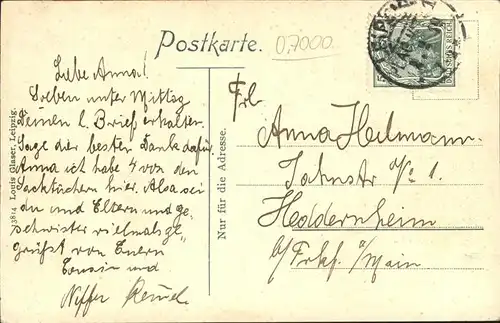 Postkarte.
07000
Liebe Anna!
Soeben unter Mittag
Deinen l. Brief erhalten
Sage dir besten Dank dafür
Anna ich habe 4 von den
Sacktüchern hier. Also sei
du und Eltern und ge-
schwister vielmals ge-
grüßt von Euern
Cousin und
Neffen
7384 Louis Glaser, Leipzig.
Nur für die Adresse.
Frl
Anna Heilmann
Jahnstr No 1.
Heddernheim
b/ Frkf. a/Main